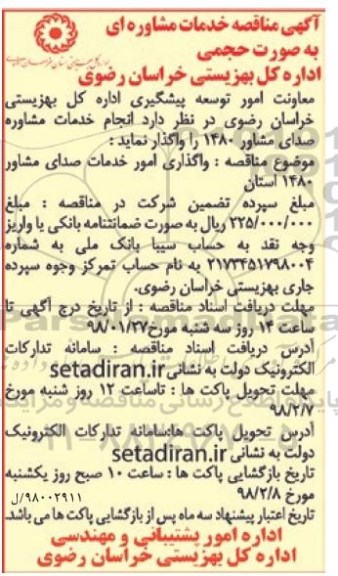 آگهی مناقصه خدمات مشاوره ای
به صورت حجمی
اداره کل بهزیستی خراسان رضوی
معاونت امور توسعه پیشگیری اداره کل بهزیستی
خراسان رضوی در نظر دارد انجام خدمات مشاوره
صدای مشاور ۱۴۸۰ را واگذار نماید :
موضوع مناقصه : واگذاری امور خدمات صدای مشاور
۱۴۸۰ استان
مبلغ سپرده تضمین شرکت در مناقصه : مبلغ
۲۲۵/۰۰۰/۰۰۰ ریال به صورت ضمانتنامه بانکی یا واریز
وجه نقد به حساب سیبا بانک ملی به شماره
۲۱۷۳۴۵۱۷۹۸۰۰۴ به نام حساب تمرکز وجوه سپرده
جاری بهزیستی خراسان رضوی.
مهلت دریافت اسناد مناقصه : از تاریخ درج آگهی تا
ساعت ۱۴ روز سه شنبه مورخ ۹۸/۰۱/۲۷
آدرس دریافت اسناد مناقصه : سامانه تدارکات
الکترونیک دولت به نشانی setadiran.ir
مهلت تحویل پاکت ها : تاساعت ۱۲ روز شنبه مورخ
۹۸/۲/۷
آدرس تحویل پاکت ها:سامانه تدارکات الکترونیک
دولت به نشانی setadiran.ir
تاریخ بازگشایی پاکت ها : ساعت ۱۰ صبح روز یکشنبه
مورخ ۹۸/۲/۸
۹۸۰۰۲۹۱۱/ل
تاریخ اعتبار پیشنهاد سه ماه پس از بازگشایی پاکت ها می باشد.
اداره امور پشتیبانی و مهندسی
اداره کل بهزیستی خراسان رضوی